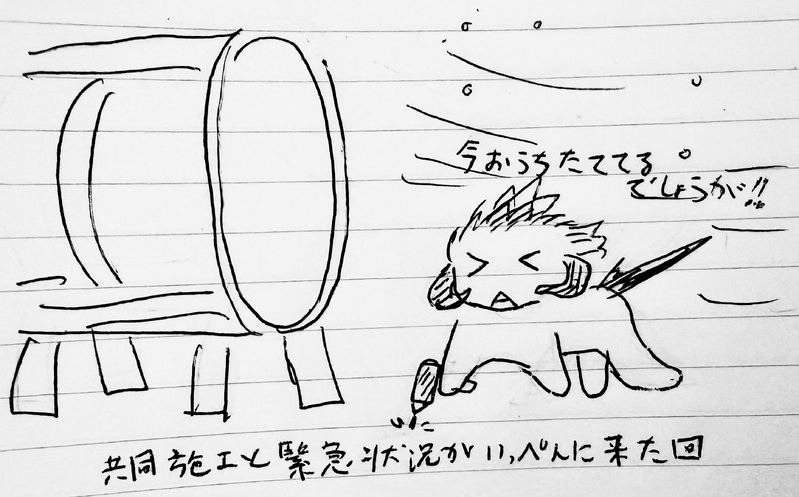 今おうちたててる
でしょうが!!
共同施工と緊急状況がいっぺんに来た回